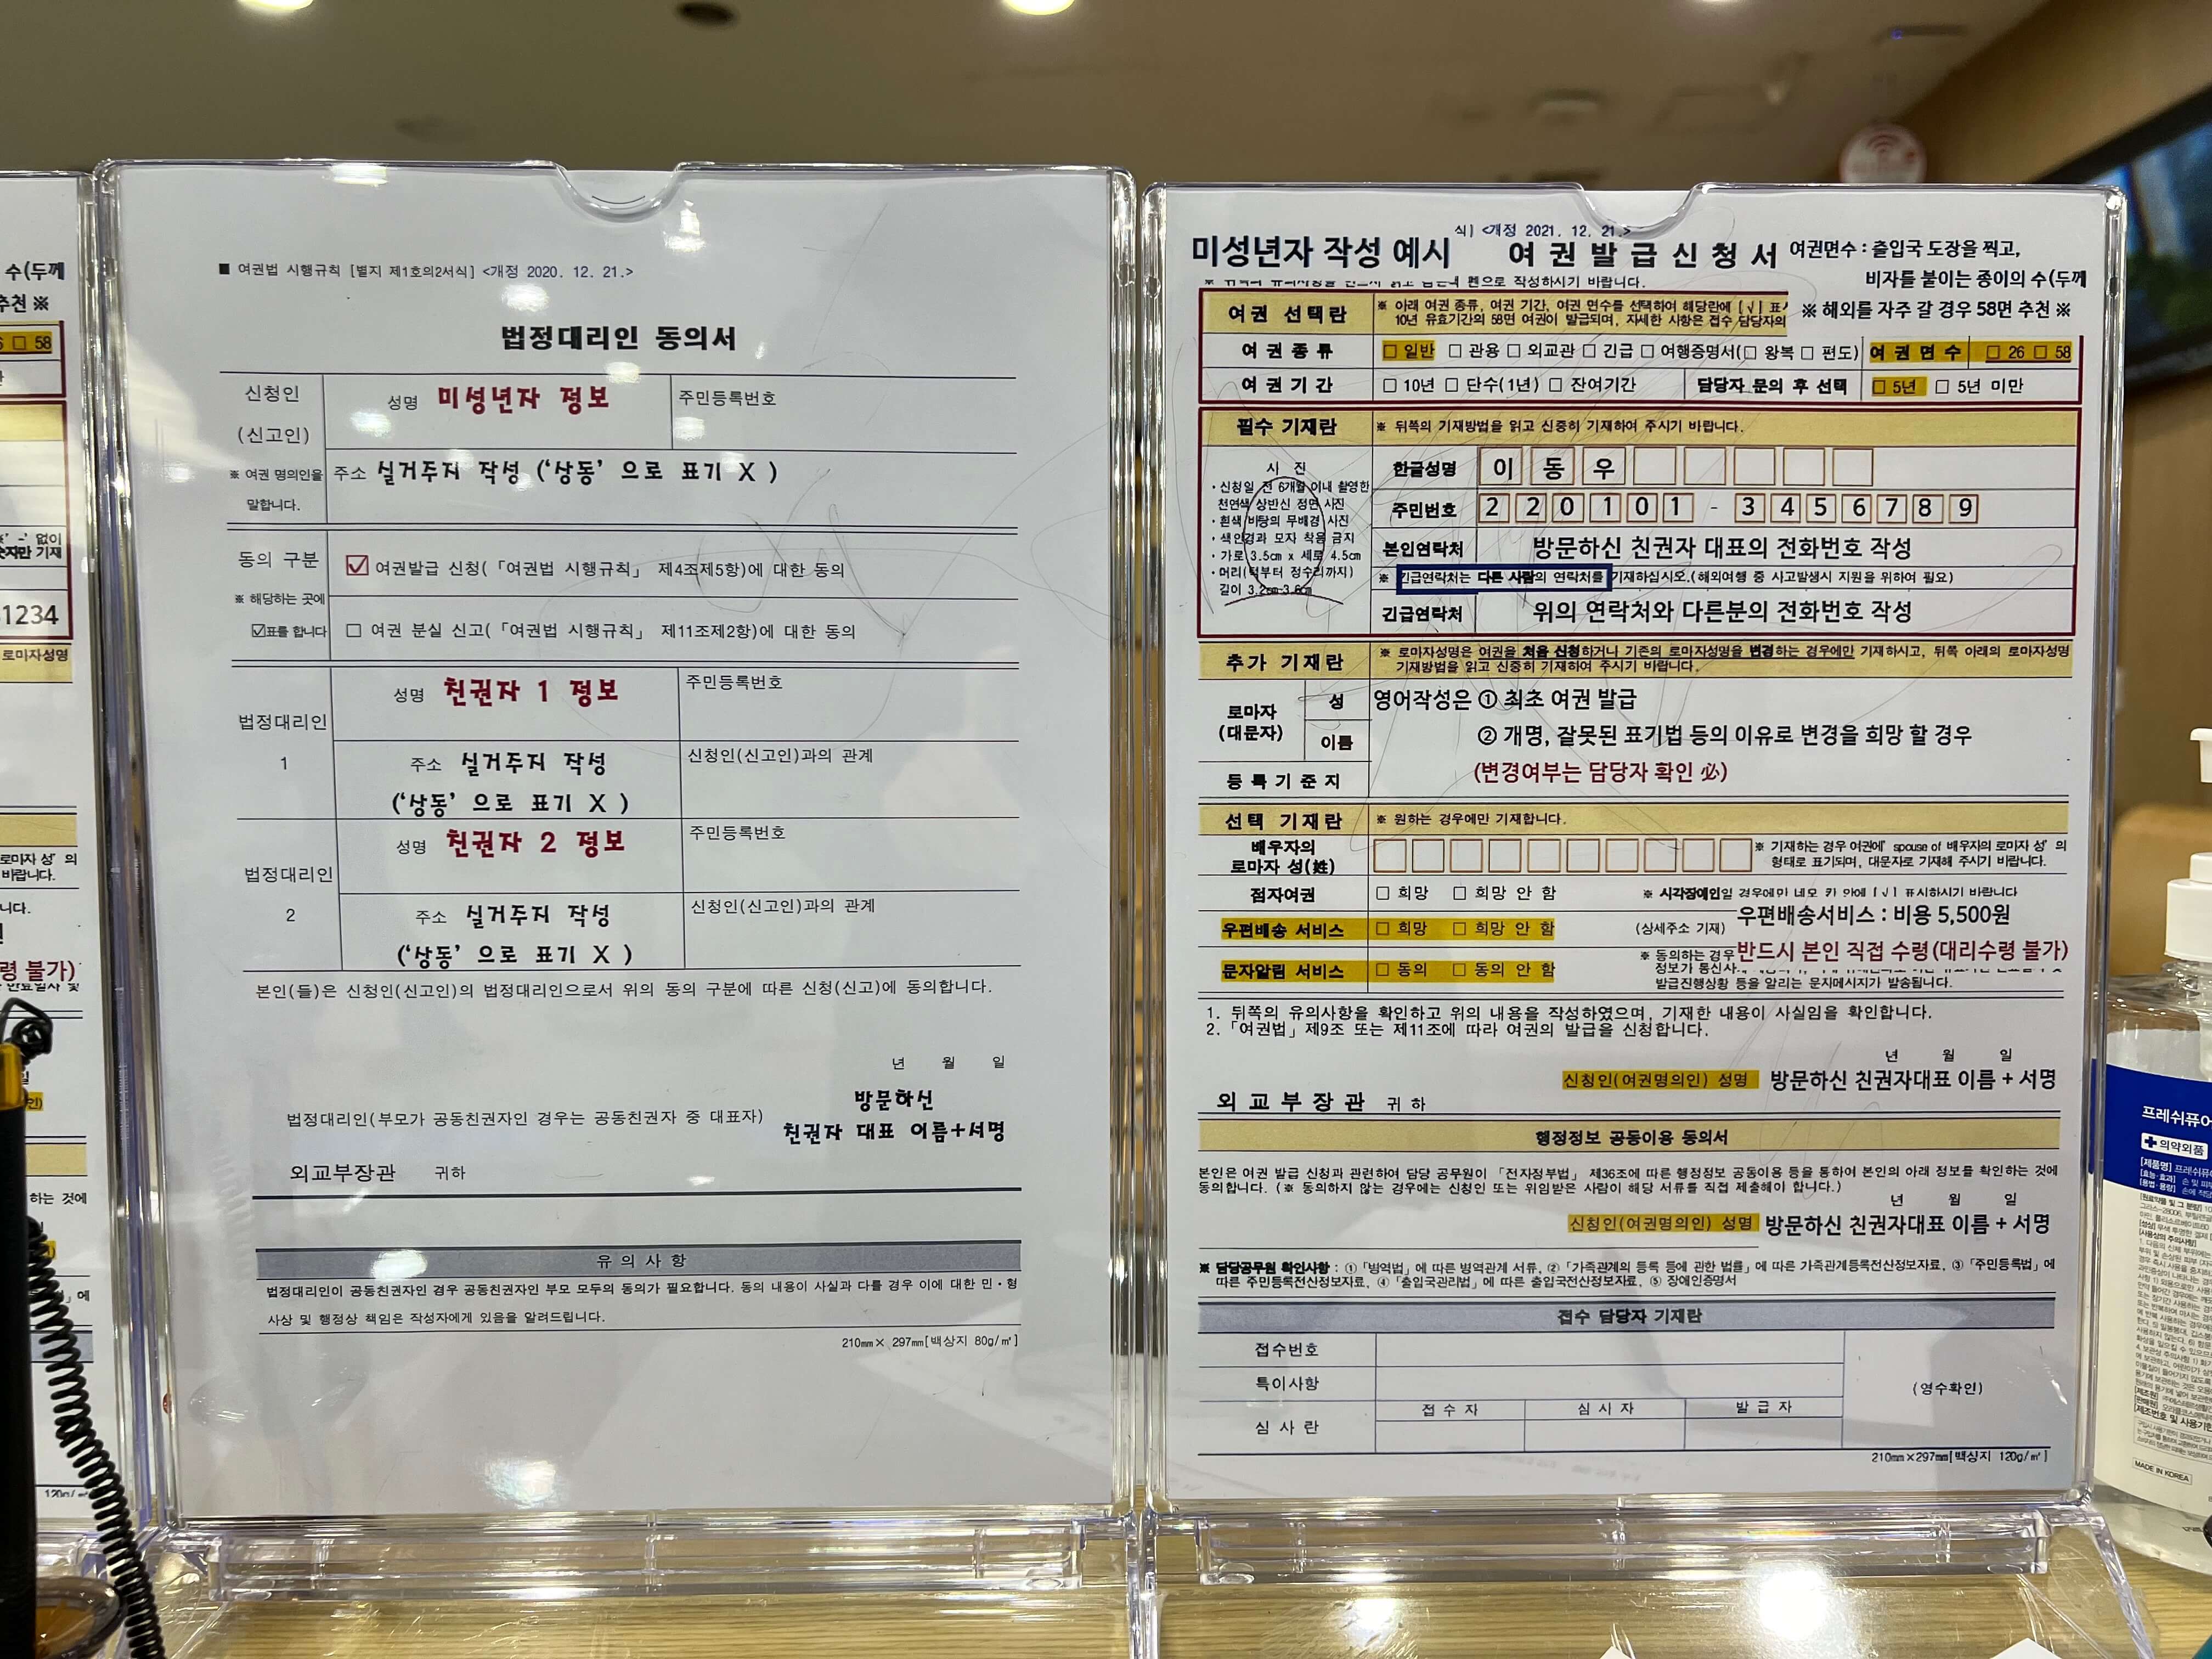 수(두께
추천 ※
58
'-' 없이
숫자만 기재
1234
로마자성명
로마자 성' 의
바랍니다.
니다.
령 불가)
하는 것에
에
■ 여권법 시행규칙 [별지 제1호의2서식] <개정 2020. 12. 21.>
법정대리인 동의서
신청인
(신고인)
※ 여권 명의인을
말합니다.
성명 미성년자 정보
주민등록번호
주소 실거주지 작성 ('상동' 으로 표기 X )
동의 구분
※ 해당하는 곳에
☑표를 합니다
☑ 여권발급 신청(「여권법 시행규칙」 제4조제5항)에 대한 동의
□ 여권 분실 신고(「여권법 시행규칙」 제11조제2항)에 대한 동의
법정대리인
1
성명 친권자 1 정보
주민등록번호
주소 실거주지 작성
('상동' 으로 표기 X )
신청인(신고인)과의 관계
법정대리인
2
성명 친권자 2 정보
주민등록번호
주소 실거주지 작성
('상동' 으로 표기 X )
신청인(신고인)과의 관계
본인(들)은 신청인(신고인)의 법정대리인으로서 위의 동의 구분에 따른 신청(신고)에 동의합니다.
년 월 일
방문하신
법정대리인(부모가 공동친권자인 경우는 공동친권자 중 대표자)
친권자 대표 이름+서명
외교부장관 귀하
유 의 사 항
법정대리인이 공동친권자인 경우 공동친권자인 부모 모두의 동의가 필요합니다. 동의 내용이 사실과 다를 경우 이에 대한 민·형
사상 및 행정상 책임은 작성자에게 있음을 알려드립니다.
210mm× 297mm[백상지 80g/㎡]
식] <개정 2021. 12. 21.>
미성년자 작성 예시
여 권 발 급 신 청 서
여권면수 : 출입국 도장을 찍고,
비자를 붙이는 종이의 수(두께
펜으로 작성하시기 바랍니다.
※ 해외를 자주 갈 경우 58면 추천 ※
여권 선택란
※ 아래 여권 종류, 여권 기간, 여권 면수를 선택하여 해당란에 [√] 표시
10년 유효기간의 58면 여권이 발급되며, 자세한 사항은 접수 담당자의
여 권 종 류 □ 일반 □ 관용 □ 외교관 □ 긴급 □ 여행증명서(□ 왕복 □ 편도) 여 권 면 수 □ 26 □ 58
여 권 기 간 □ 10년 □ 단수(1년) □ 잔여기간 담당자 문의 후 선택 □ 5년 □ 5년 미만
필수 기재란 ※ 뒤쪽의 기재방법을 읽고 신중히 기재하여 주시기 바랍니다.
사 진
·신청일 전 6개월 이내 촬영한
천연색 상반신 정면 사진
·흰색 바탕의 무배경 사진
·색안경과 모자 착용 금지
·가로 3.5cm x 세로 4.5cm
·머리(턱부터 정수리까지)
길이 3.2cm-3.6cm
한글성명 이 동 우
주민번호 2 2 0 1 0 1 - 3 4 5 6 7 8 9
본인연락처 방문하신 친권자 대표의 전화번호 작성
※ 긴급연락처는 다른 사람의 연락처를 기재하십시오.(해외여행 중 사고발생시 지원을 위하여 필요)
긴급연락처 위의 연락처와 다른분의 전화번호 작성
추가 기재란
※ 로마자성명은 여권을 처음 신청하거나 기존의 로마자성명을 변경하는 경우에만 기재하시고, 뒤쪽 아래의 로마자성명
기재방법을 읽고 신중히 기재하여 주시기 바랍니다.
로마자
(대문자)
성
이름
영어작성은 ① 최초 여권 발급
② 개명, 잘못된 표기법 등의 이유로 변경을 희망 할 경우
(변경여부는 담당자 확인 必)
등 록 기 준 지
선택 기재란 ※ 원하는 경우에만 기재합니다.
배우자의
로마자 성(姓)
※ 기재하는 경우 여권에' spouse of 배우자의 로마자 성' 의
형태로 표기되며, 대문자로 기재해 주시기 바랍니다.
점자여권 □ 희망 □ 희망 안 함
※ 시각장애인일 경우에만 네모 칸 안에 [√] 표시하시기 바랍니다
우편배송 서비스 □ 희망 □ 희망 안 함
(상세주소 기재)
우편배송서비스 : 비용 5,500원
반드시 본인 직접 수령(대리수령 불가)
문자알림 서비스 □ 동의 □ 동의 안 함
※ 동의하는 경우
정보가 통신사
발급진행상황 등을 알리는 문자메시지가 발송됩니다.
1. 뒤쪽의 유의사항을 확인하고 위의 내용을 작성하였으며, 기재한 내용이 사실임을 확인합니다.
2.「여권법」제9조 또는 제11조에 따라 여권의 발급을 신청합니다.
년 월 일
신청인(여권명의인) 성명 방문하신 친권자대표 이름 + 서명
외 교 부 장 관 귀 하
행정정보 공동이용 동의서
본인은 여권 발급 신청과 관련하여 담당 공무원이 「전자정부법」 제36조에 따른 행정정보 공동이용 등을 통하여 본인의 아래 정보를 확인하는 것에
동의합니다. (※ 동의하지 않는 경우에는 신청인 또는 위임받은 사람이 해당 서류를 직접 제출해야 합니다.)
년 월 일
신청인(여권명의인) 성명 방문하신 친권자대표 이름 + 서명
※ 담당공무원 확인사항 : ①「병역법」에 따른 병역관계 서류, ②「가족관계의 등록 등에 관한 법률」에 따른 가족관계등록전산정보자료, ③「주민등록법」에
따른 주민등록전산정보자료, ④「출입국관리법」에 따른 출입국전산정보자료, ⑤ 장애인증명서
접수 담당자 기재란
접수번호
특이사항
심 사 란
접 수 자 심 사 자 발 급 자
(영수확인)
210mm×297mm[백상지 120g/㎡]
의약외품
MADE IN KOREA